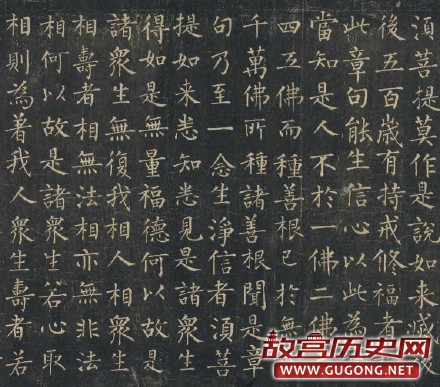 湏菩提莫作是說如来滅
後五百歲有持戒修福者
此章句能生信心以此為
當知是人不於一佛二佛
四五佛而種善根已於無
千萬佛所種諸善根聞是章
句乃至一念生淨信者湏菩
提如来悉知悉見是諸衆生
得如是無量福德何以故是
諸衆生無復我相人相衆生
相壽者相無法相亦無非法
相何以故是諸衆生若心取
相則為著我人衆生壽者若
故宫历史网
WWW.GUGONG.NET